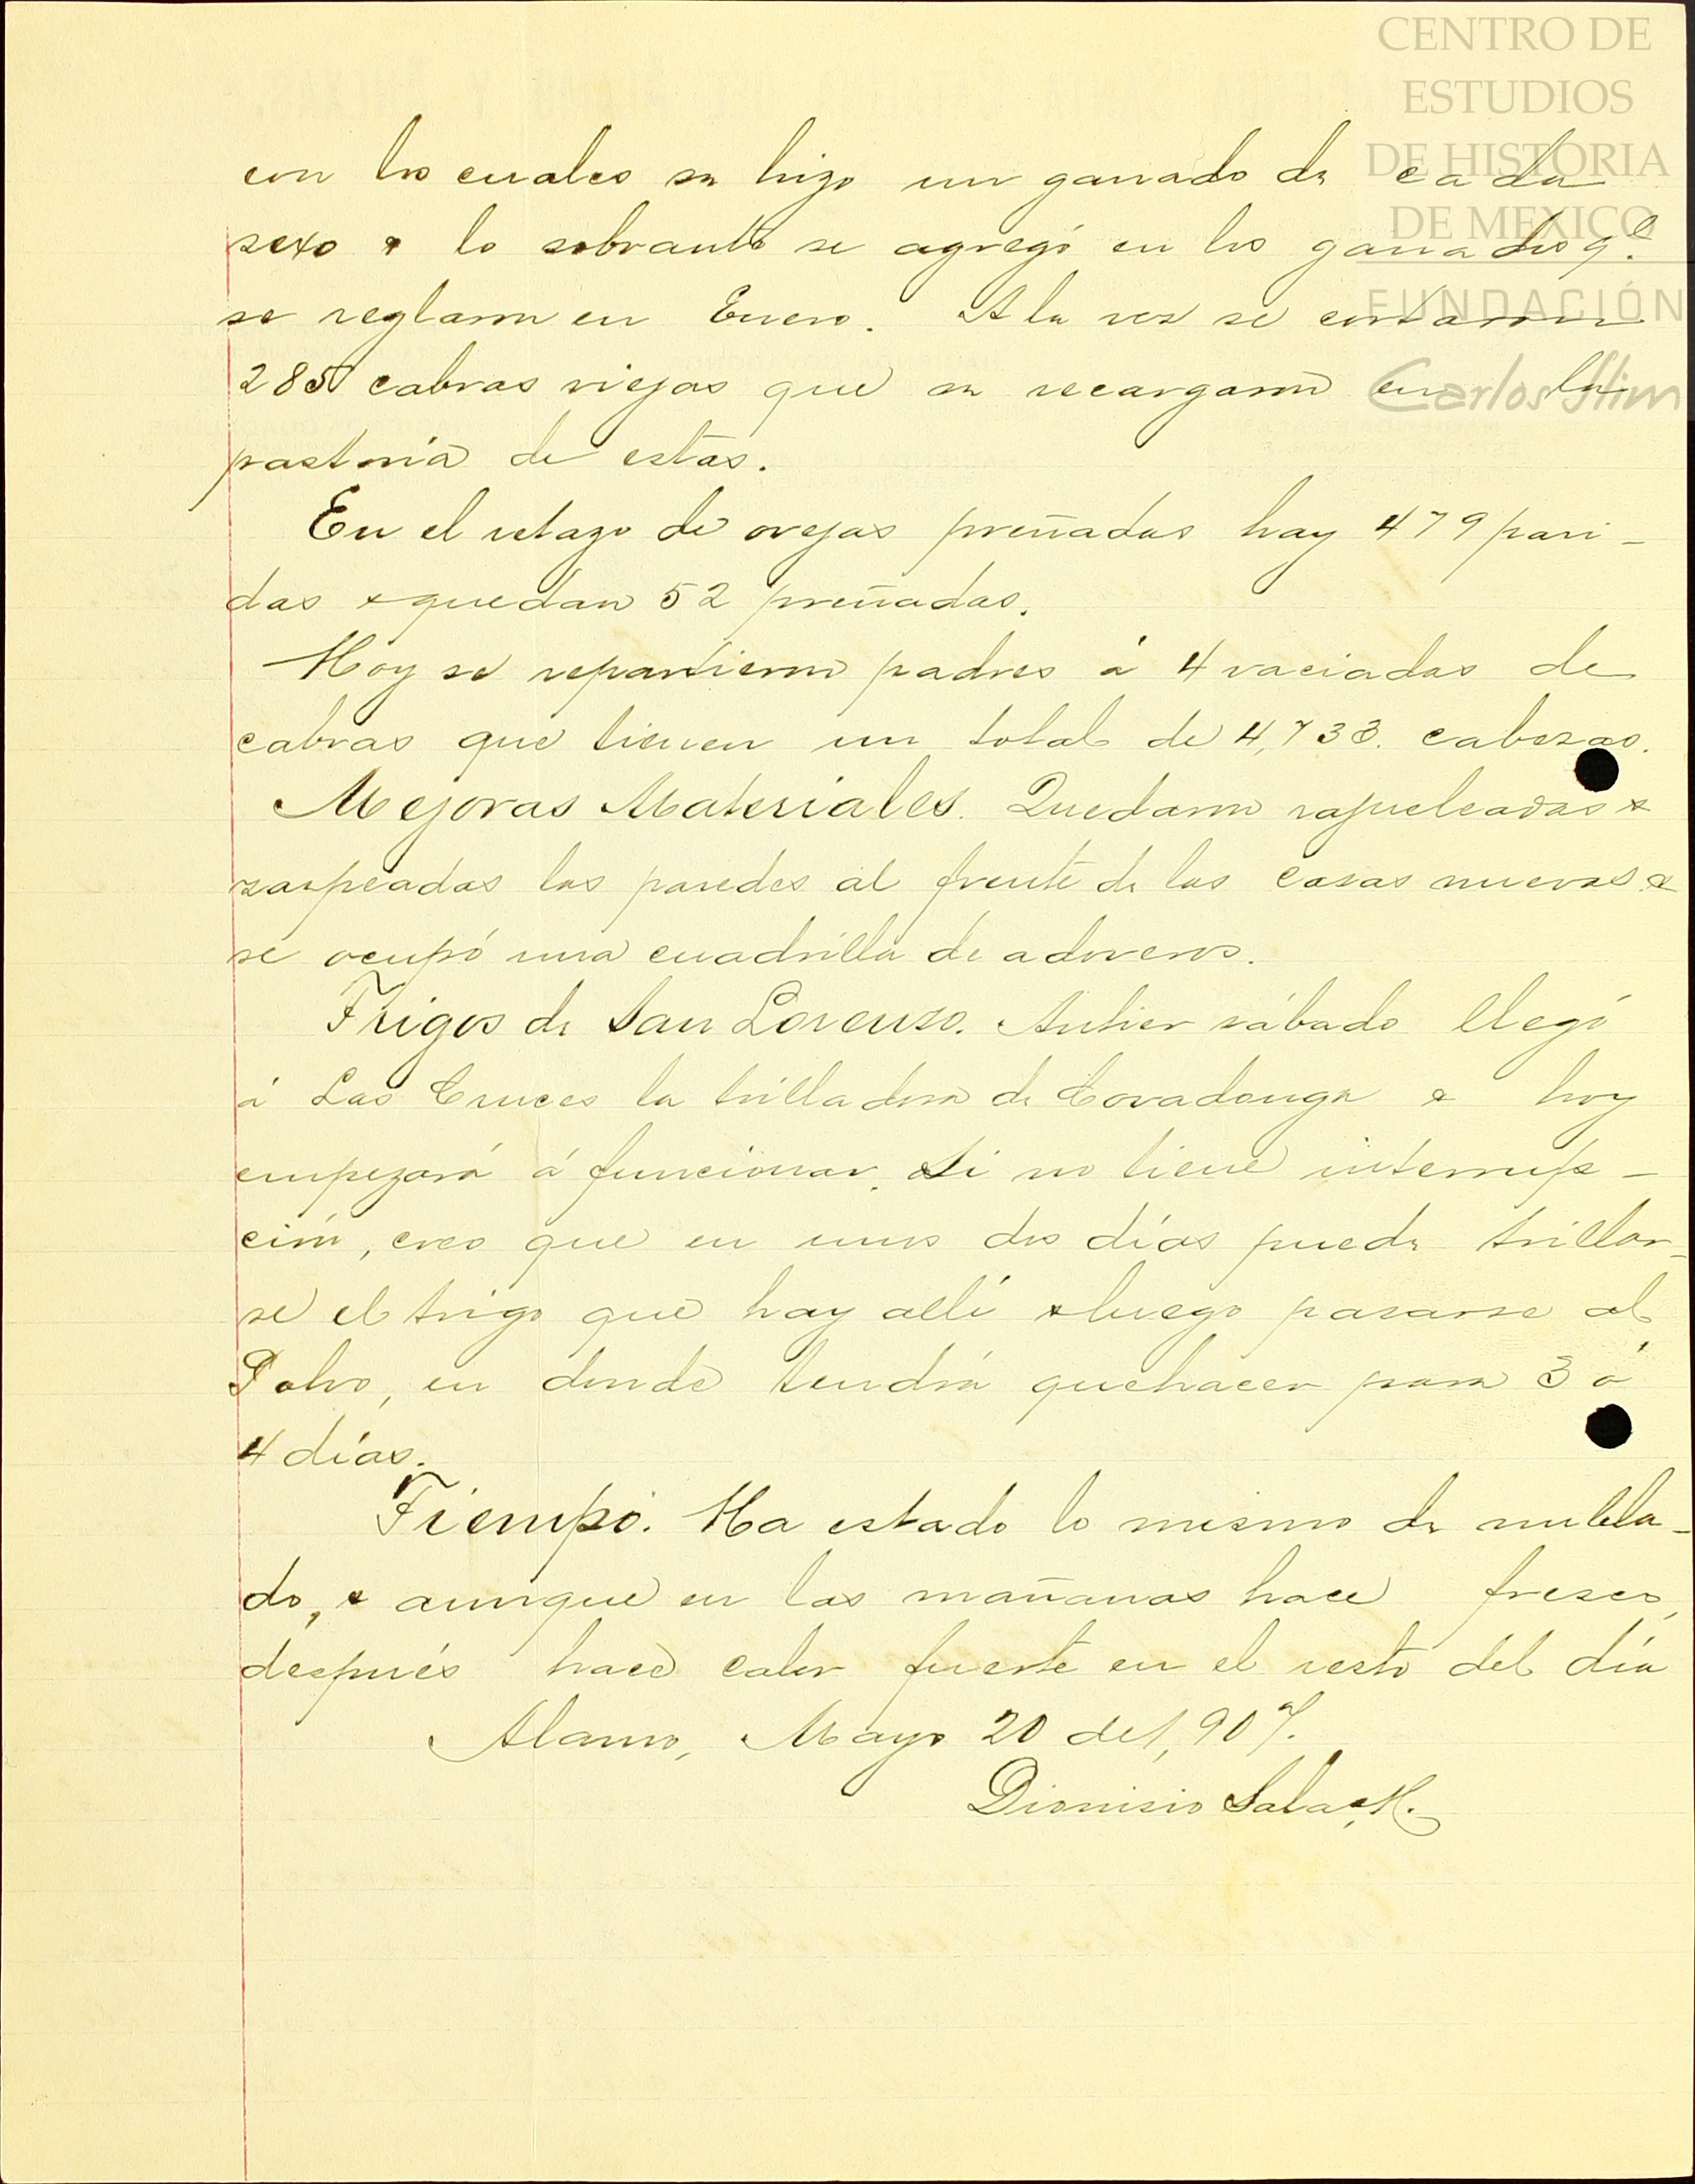 CENTRO DE
ESTUDIOS
DE HISTORIA
DE MEXICO
FUNDACIÓN
Carlos Slim
con los cuales se hizo un ganado de cada
sexo & lo sobrante se agregó en los ganados q.e
se reglaron en Enero. A la vez se cortaron
285 cabras viejas que se recargaron en la
pastoría de estas.
En el retazo de ovejas preñadas hay 479 pari-
das & quedan 52 preñadas.
Hoy se repartieron padres á 4 vaciadas de
cabras que tienen un total de 4,733. cabezas.
Mejoras Materiales. Quedaron rajueleadas &
zarpeadas las paredes al frente de las casas nuevas &
se ocupó una cuadrilla de adoveros.
Trigos de San Lorenzo. Antier sábado llegó
á Las Cruces la trilladora de Covadonga & hoy
empezará á funcionar. Si no tiene interrup-
ción, creo que en unos dos días puede trillar-
se el trigo que hay allí & luego pasarse al
Polvo, en donde tendrá quehacer para 3 ó
4 días.
Tiempo. Ha estado lo mismo de nubla-
do, & aunque en las mañanas hace fresco,
después hace calor fuerte en el resto del día
Alamo, Mayo 20 de 1,907.
Dionisio Salas, H.